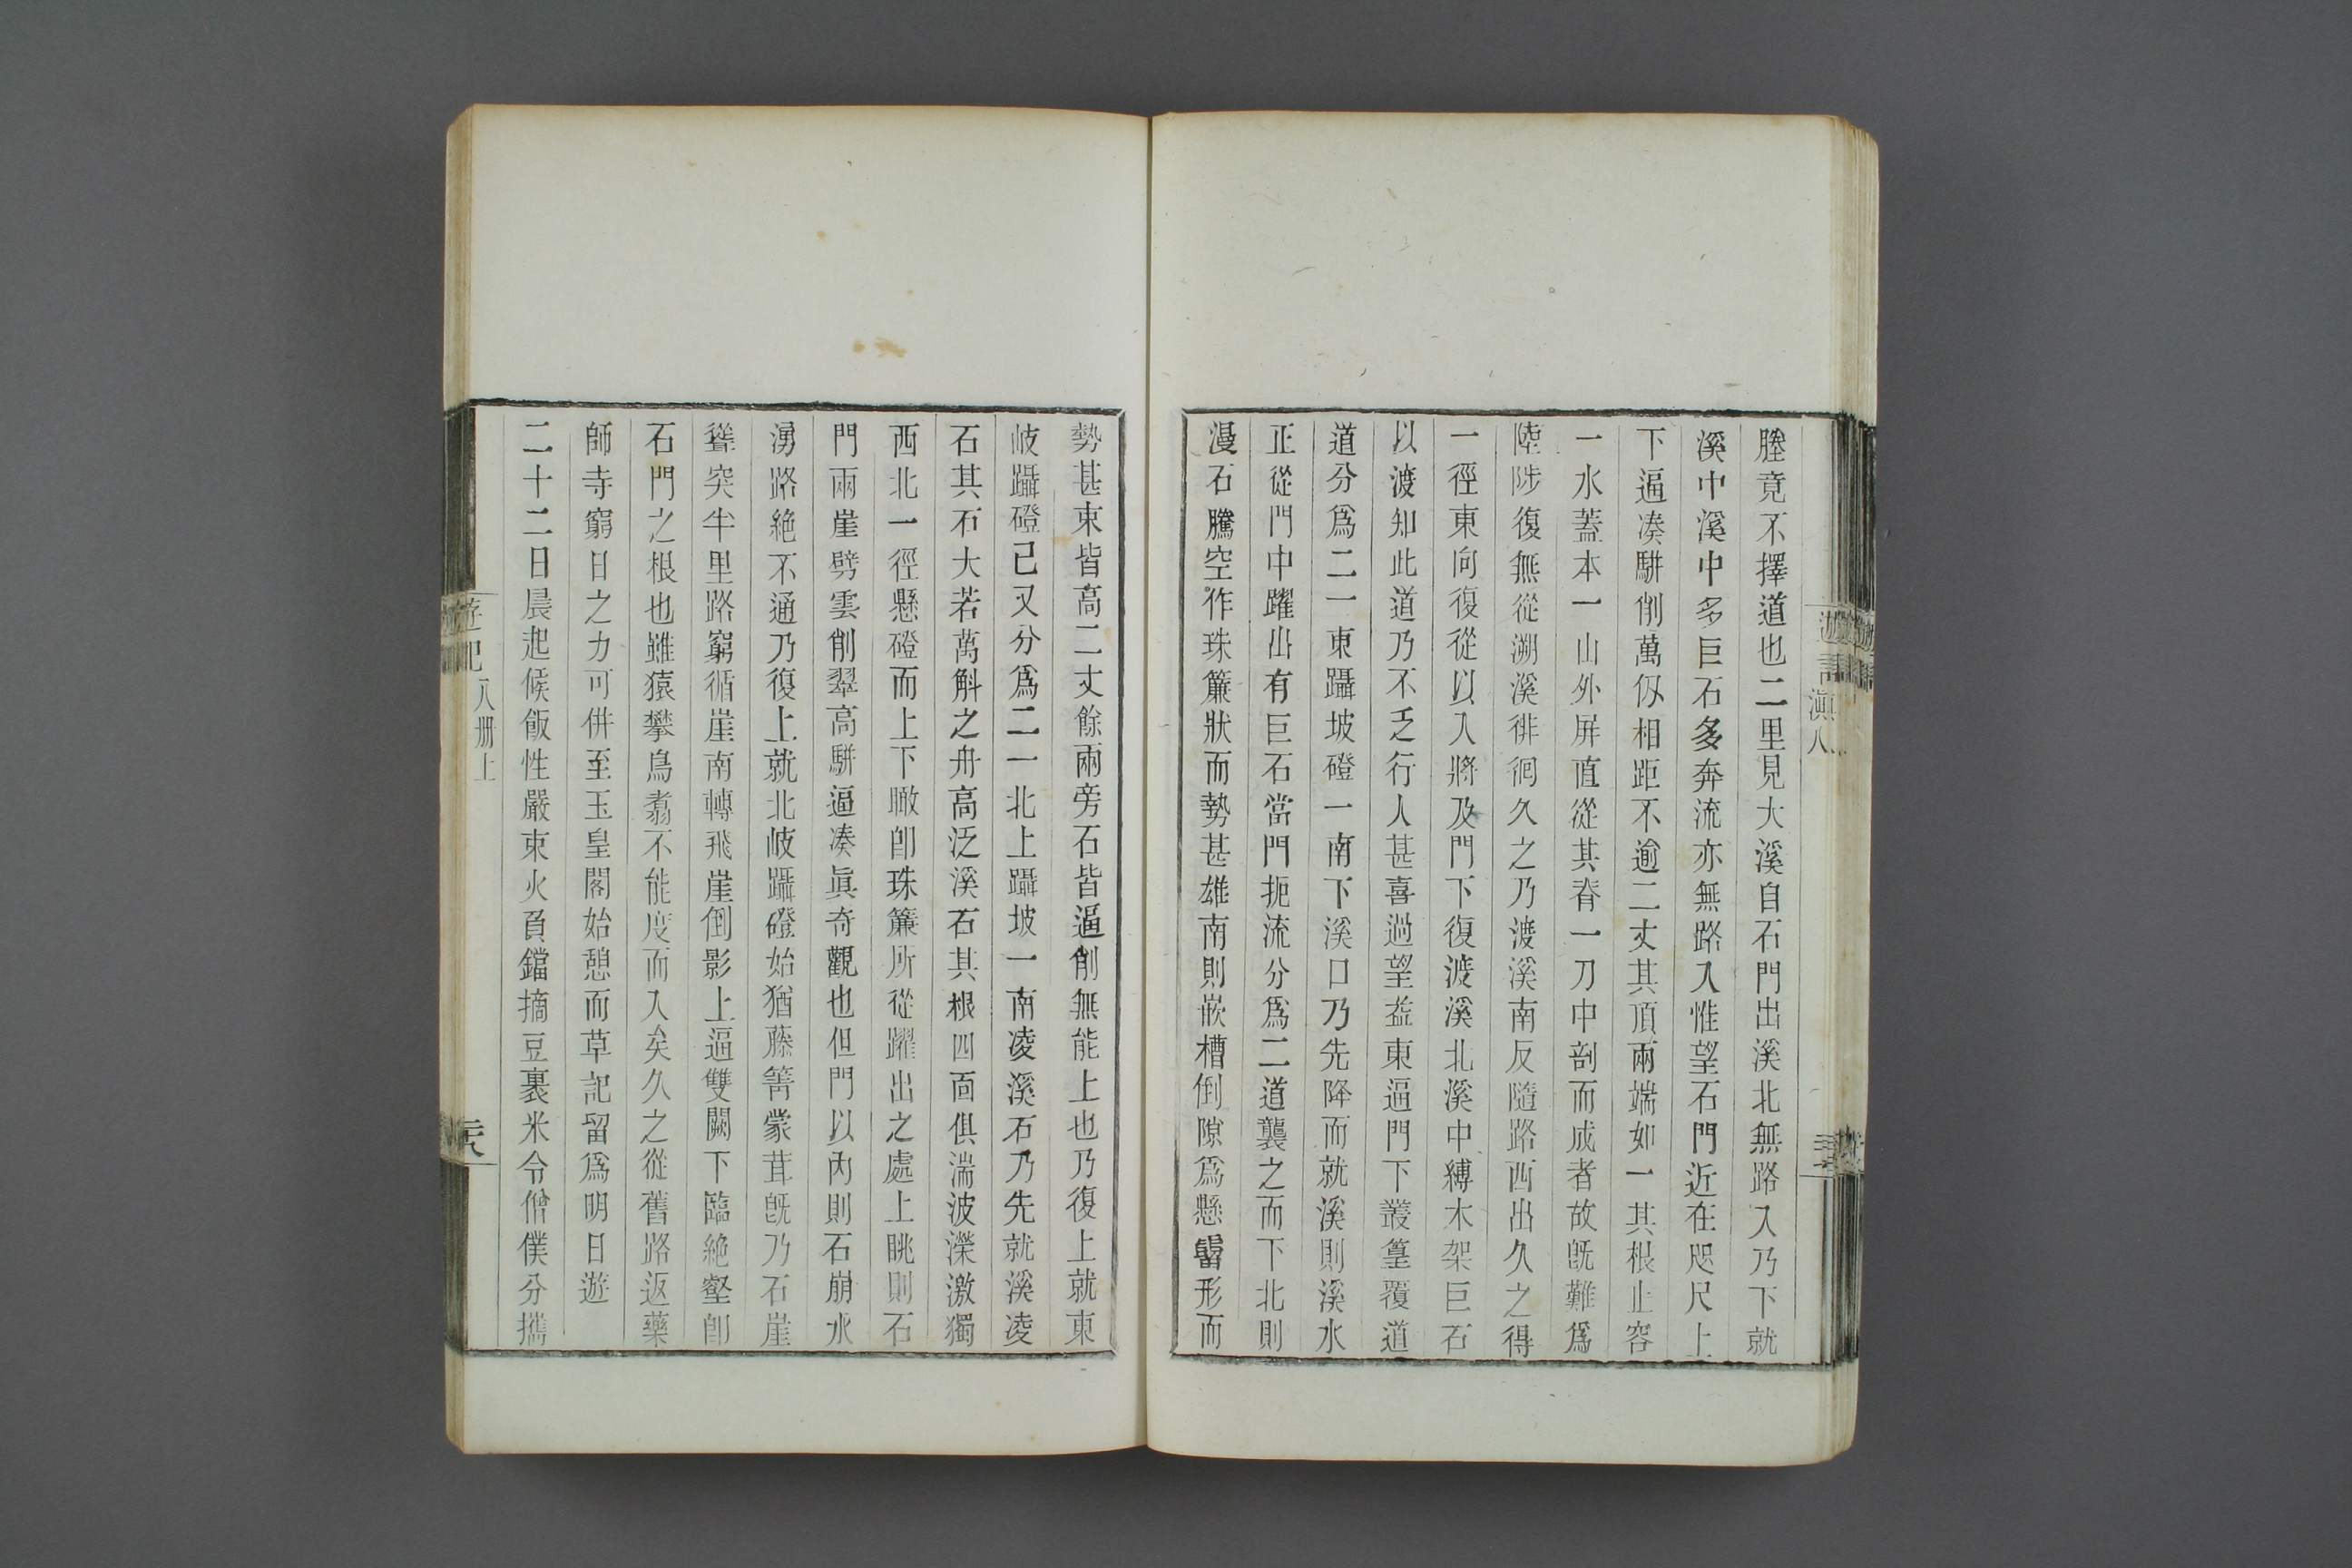 塍竟不擇道也二里見大溪自石門出溪北無路入乃下就
溪中溪中多巨石多奔流亦無路入惟望石門近在咫尺上
下逼凑駢削萬仭相距不逾二丈其頂兩端如一其根止容
一水蓋本一山外屏直從其脊一刀中剖而成者故旣難爲
陸陟復無從溯溪徘徊久之乃渡溪南反隨路西出久之得
一徑東向復從以入將及門下復渡溪北溪中縛木架巨石
以渡知此道乃不乏行人甚喜過望益東逼門下叢篁覆道
道分爲二一東躡坡磴一南下溪口乃先降而就溪則溪水
正從門中躍出有巨石當門扼流分爲二道襲之而下北則
漫石騰空作珠簾狀而勢甚雄南則嵌槽倒隙爲懸霤形而
勢甚束皆高二丈餘兩旁石皆逼削無能上也乃復上就東
岐躡磴已又分爲二一北上躡坡一南凌溪石乃先就溪凌
石其石大若萬斛之舟高泛溪石其根四面俱湍波瀠激獨
西北一徑懸磴而上下瞰卽珠簾所從躍出之處上眺則石
門兩崖劈雲削翠高駢逼凑眞奇觀也但門以內則石崩水
湧路絶不通乃復上就北岐躡磴始猶藤箐蒙茸旣乃石崖
聳突半里路窮循崖南轉飛崖倒影上逼雙闕下臨絶壑卽
石門之根也雖猿攀鳥翥不能度而入矣久之從舊路返藥
師寺窮日之力可倂至玉皇閣始憩而草記留爲明日遊
二十二日晨起候飯性嚴束火負鐺摘豆裹米令僧僕分攜
遊記 八册上